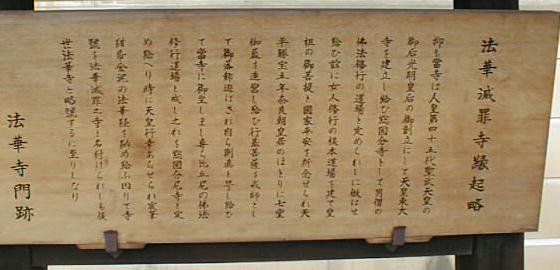 法華滅罪寺縁起略
抑も當寺は人皇第四十五代聖武天皇の
御后光明皇后の御創立にして天皇東大
寺を建立し給ひ総國分寺として男僧の
佛法修行の道場と定められしに倣はせ
給ひ誼に女人修行の根本道場を建て皇
祖の御菩提と國家平安を祈念せられ天
平勝宝元年奈良朝皇居のほとりに七堂
伽藍を造営し給ひ行基菩薩を戒師とし
て御落飾遊ばされ自ら則真と号し給ひ
て當寺に御坐しまし専ら比丘尼の佛法
修行道場と成し之れを総國分尼寺と定
め給へり時に天皇行幸あらせられ宸筆
紺紙金泥の法華経を納め給ふ因りて寺
號を法華滅罪之寺と名付けられしも後
世法華寺と略號するに至りしなり
法華寺門跡